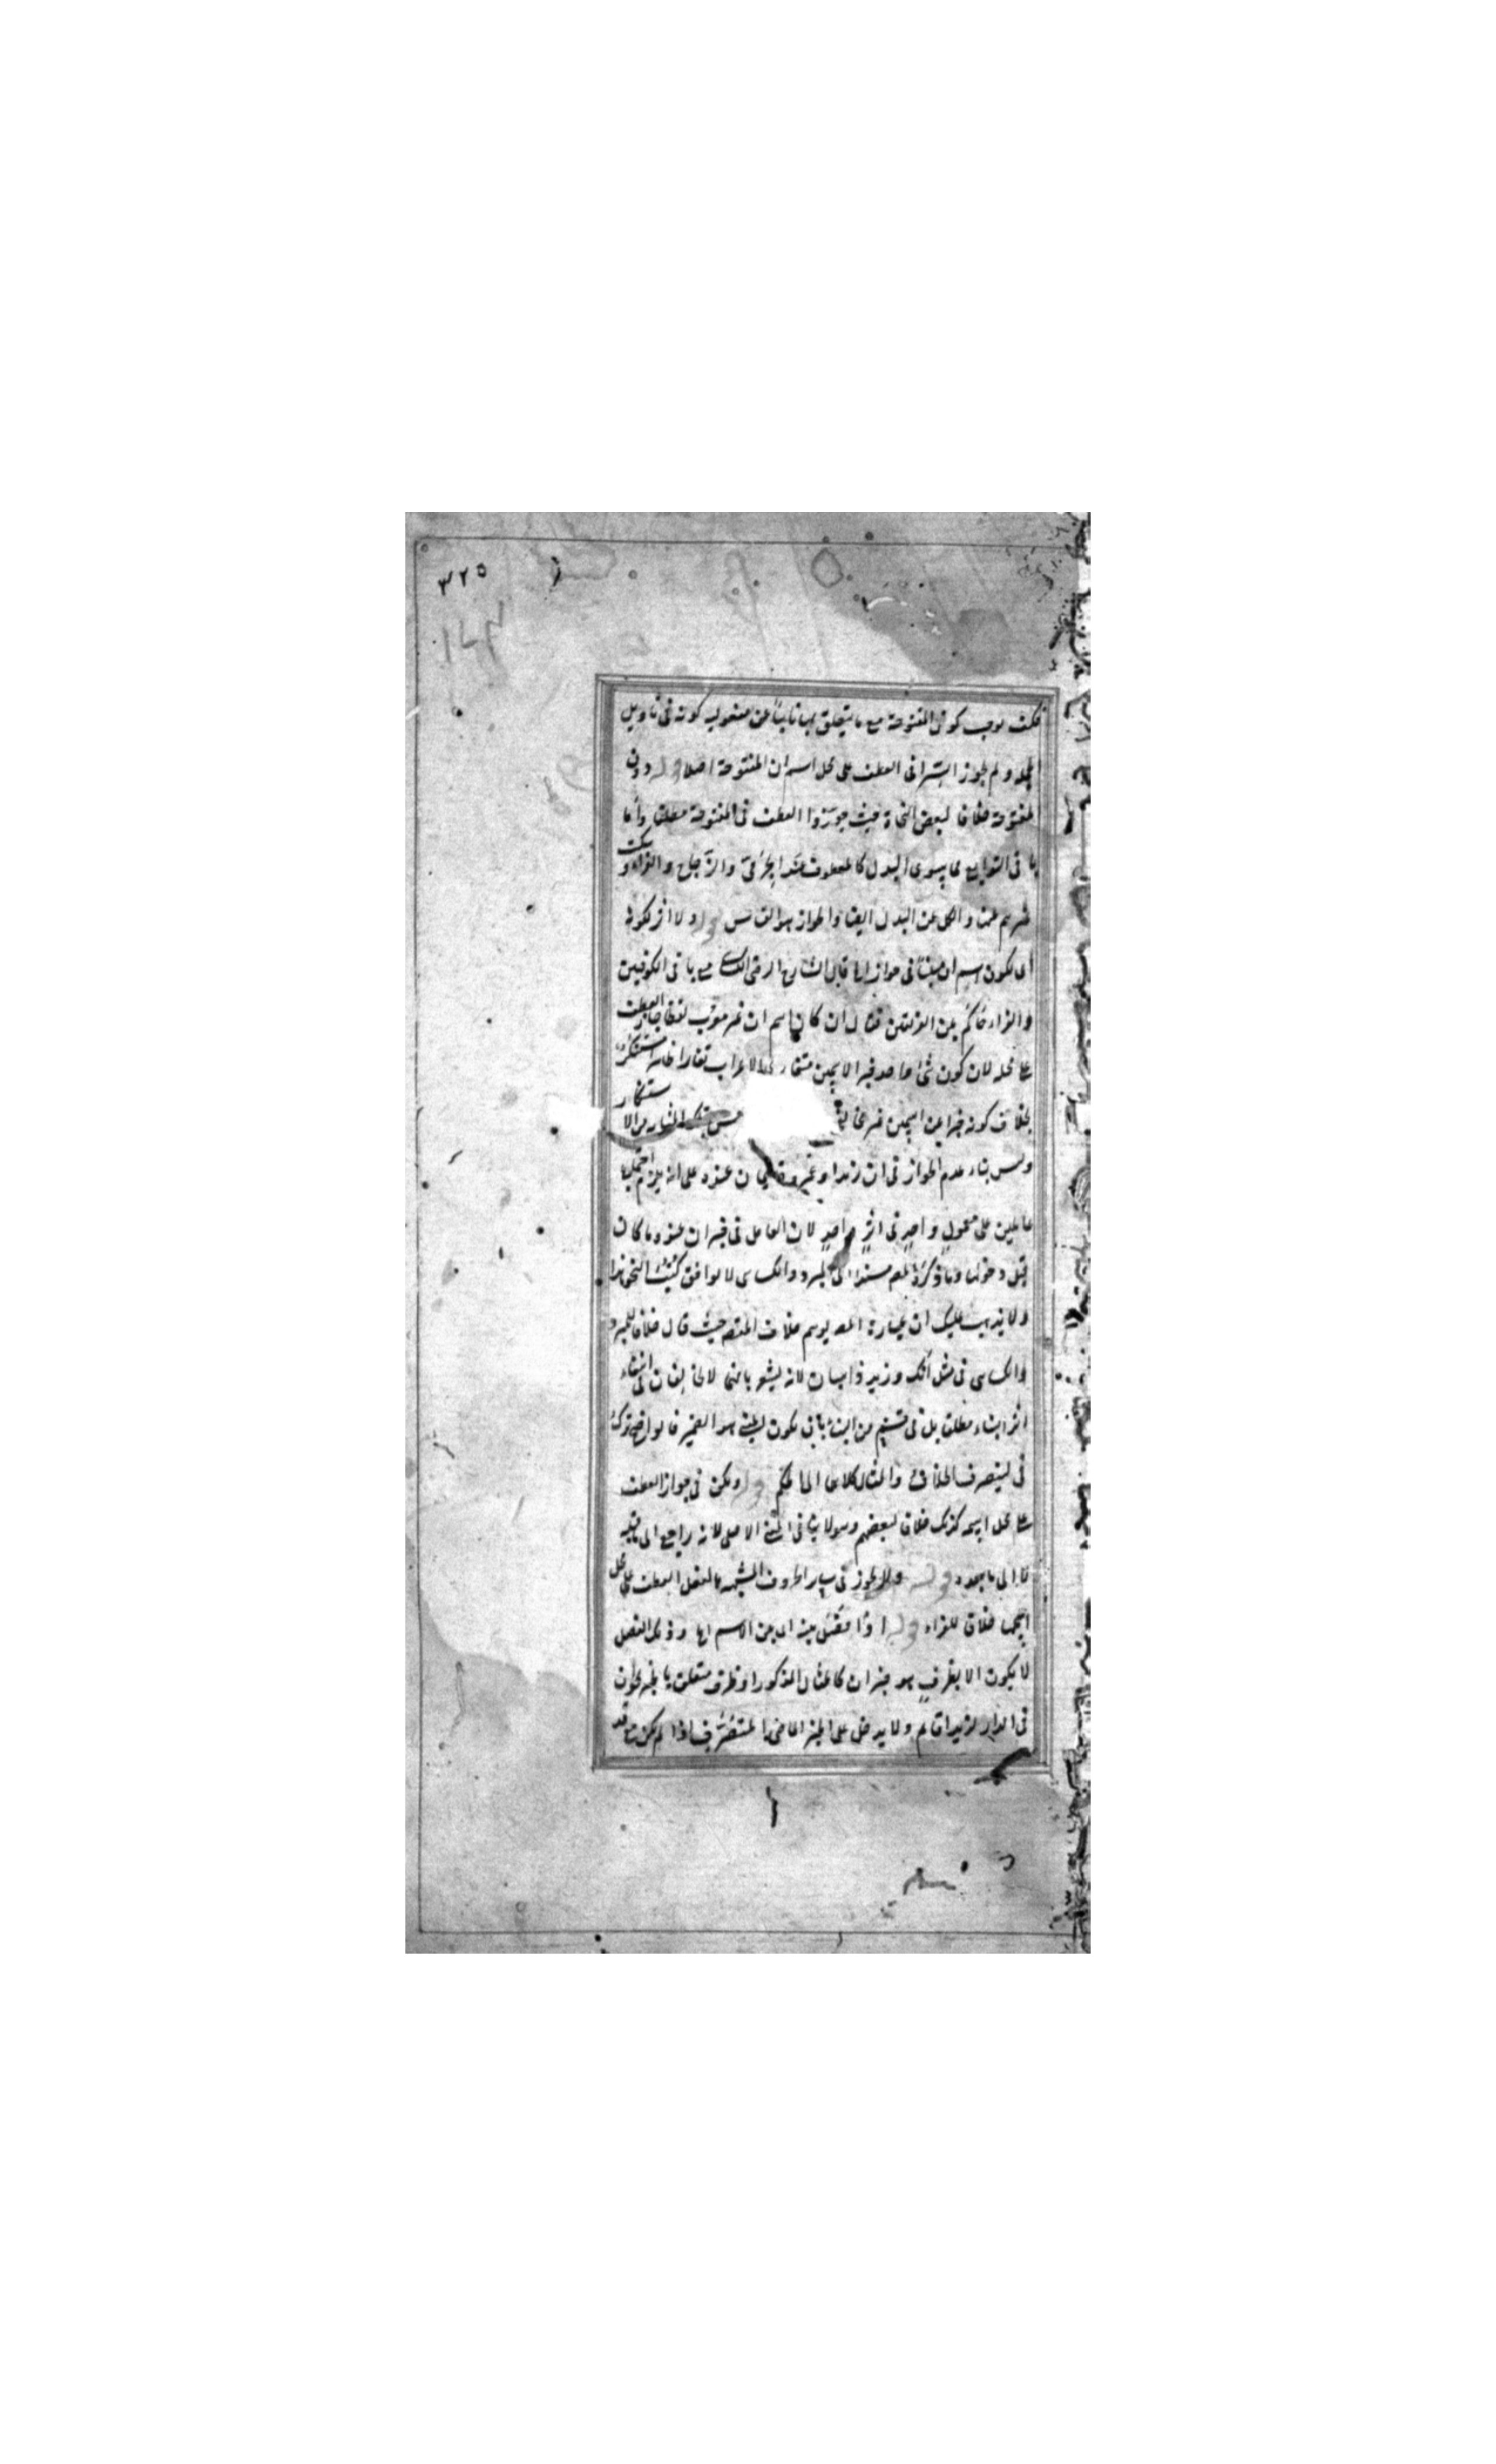 ٣٢٥
فكيف يوجب كون المفتوحة مع ما يتعلق بها نائبا عن مفعوليه كونه فى تاويل
الجملة ولم يجوز السيرافى العطف على محل اسم ان المفتوحة اصلا قوله دون
المفتوحة خلافا لبعض النحاة حيث جوّزوا العطف فى المفتوحة مطلقا واما
باقى التوابع مما سوى البدل كالمعطوف عند الجرمىّ والزّجاج والفراء وسكت
غيرهم عنه والكل عن البدل ايضا والجواز هو القياس قوله ولا اثر لكونه
اى لكون اسم ان مبنيا فى جوازها قال الشارح الرضى الكسائى مع باقى الكوفيين
والفراء حَاكَم بين الفريقين فقال ان كان اسم ان غير معرب لفظا جاز العطف
على محله لان كون شئ واحد خبرا لاسمين الاعراب تغايرا ظاهرا مستنكر
بخلاف كونه خبرا عن اسمين غير تلك المثابة من الاستنكار
وليس بناء عدم الجواز فى ان زيدا وعمرو عنده على انه يلزم اجتماع
عاملين على معمولٍ واحدٍ فى اثرٍ واحدٍ لان العامل فى خبر ان عنده ما كان
قبل دخولها وما ذكره المص مسندا الى المبرد والكسائى لا يوافق كتب النحو هذا
ولا يذهب عليك ان عبارة المص يوهم خلاف المتصه حيث قال خلافا للمبرد
والكسائى فى مثل انّك وزيد ذاهبان لانه يشعر بانهما لا يخالفان فى انتفاء
اثر البناء مطلقا بل فى قسمٍ من البناء بان يكون المبنى هو الضمير فالواضح ترك
فى لينصرف الخلاف والمثال كلاهما الى الحكم قوله ولكن فى جواز العطف
على محل اسمه كذلك خلافا لبعضهم وهو لا ينافى المعنى الاصلى لانه راجع الى ما قبله
لا الى ما بعده قوله ولا يجوز فى سائر الحروف المشبهة بالفعل العطف على محل
اسمها خلافا للفراء قوله اذا فصل بينه اى بين الاسم وذلك الفصل
لا يكون الا بظرفٍ هو خبر ان كالمثال المذكور او ظرف متعلق بالخبر نحو ان
فى الدار لزيدا قائم ولا يدخل على الخبر الماضى المتصرّف اذا لم يكن مع قد